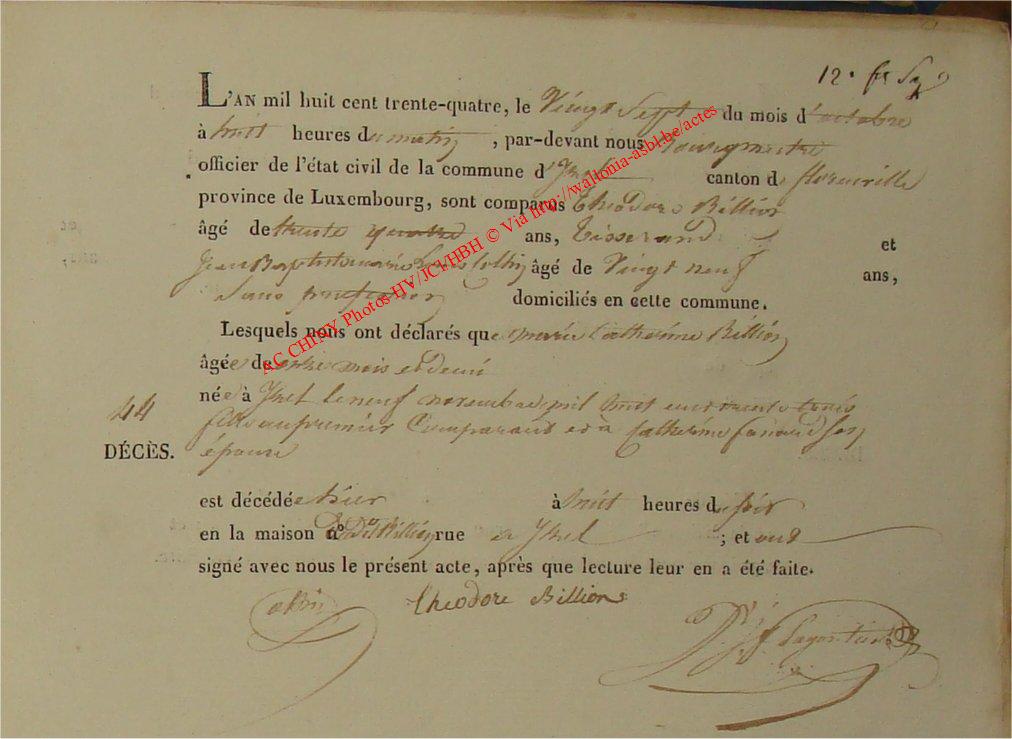 12.
L'AN mil huit cent trente-quatre, le Vingt Sept du mois d'octobre
à huit heures du matin, par-devant nous bourgmestre
officier de l'état civil de la commune d'Izel canton de florenville
province de Luxembourg, sont comparus Theodore Billion
âgé de trente quatre ans, tisserand et
Jean Baptiste marie Louis Collin âgé de Vingt neuf ans,
Sans profession domiciliés en cette commune.
Lesquels nous ont déclarés que marie Catherine Billion
âgée de onze mois et demi
née à Izel le neuf novembre mil huit cent trente trois
fille au premier Comparant et à Catherine son
44
DÉCÈS.
épouse
est décédée hier à huit heures du soir
en la maison Billion rue à Izel ; et ont
signé avec nous le présent acte, après que lecture leur en a été faite.
Theodore Billion
AC CHINY Photos HV/JCI/HBH © Via http://wallonia-asbl.be/actes